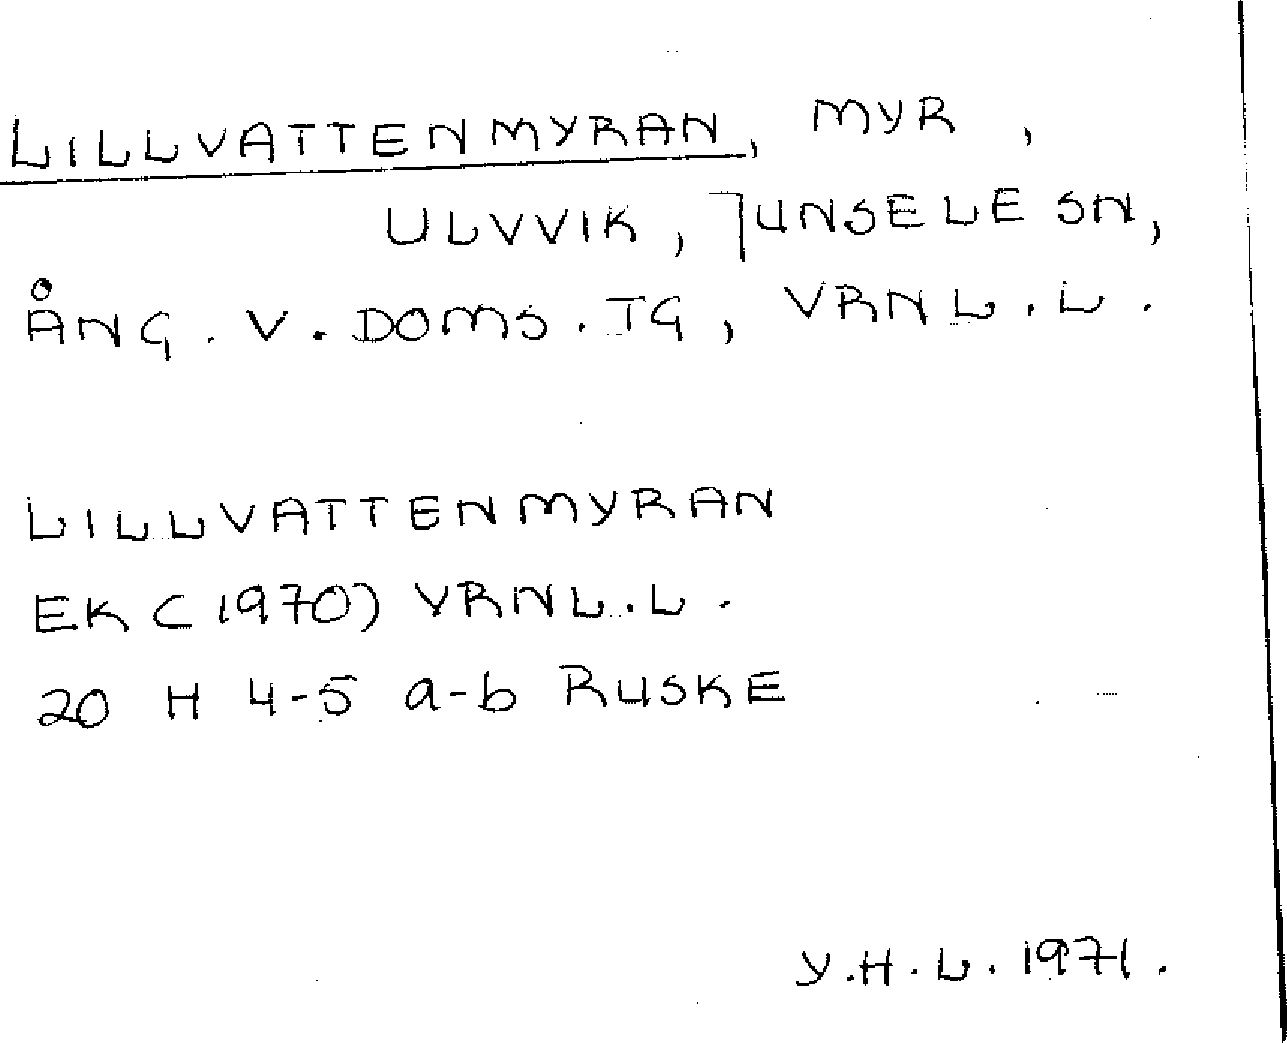 LILLVATTENMYRAN, MYR,
ULVVIK, JUNSELE SN,
ÅNG. V. DOMS. TG, VRNL. L.
LILLVATTENMYRAN
EK (1970) VRNL. L.
20 H 4-5 a-b RUSKE
Y.H.L. 1971.